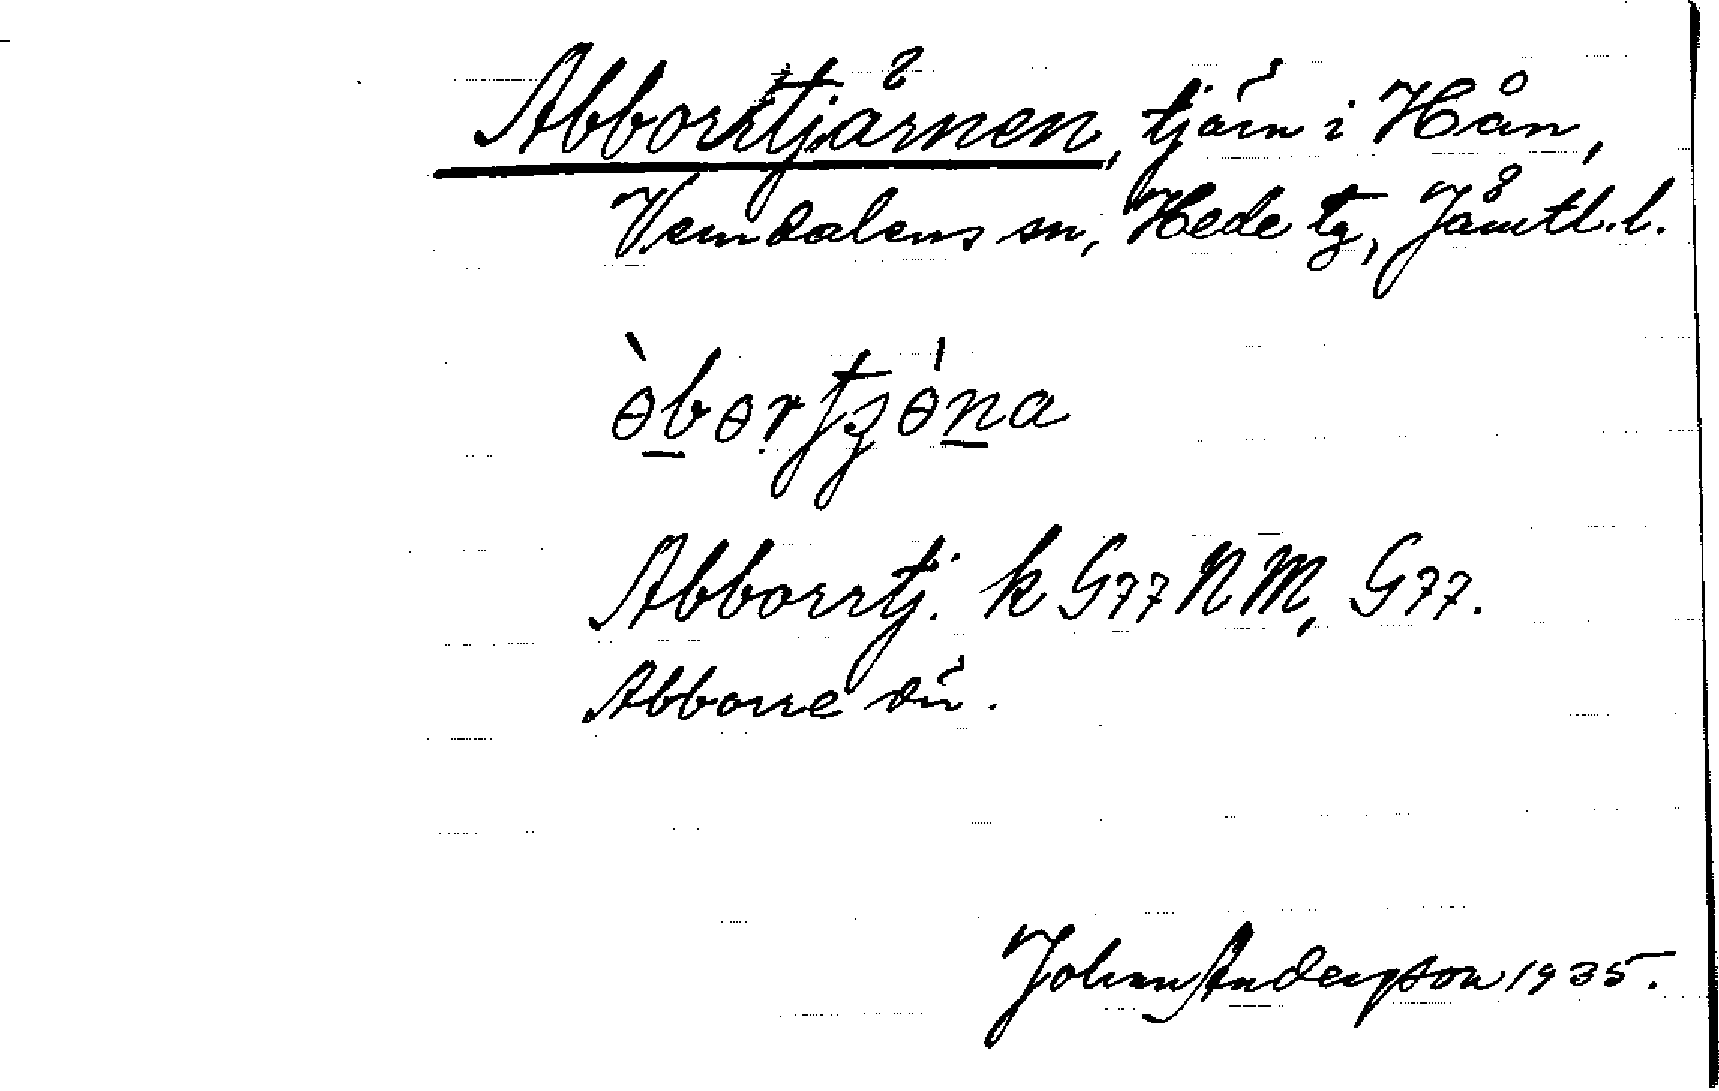 Abborrtjärnen, tjärn i Hån,
Vemdalens sn, Hede tg, Jämtl. l.
òbortʒóna
Abborrtj. k G77 NM, G77.
Abborre där.
Johan Anderzson 1935.